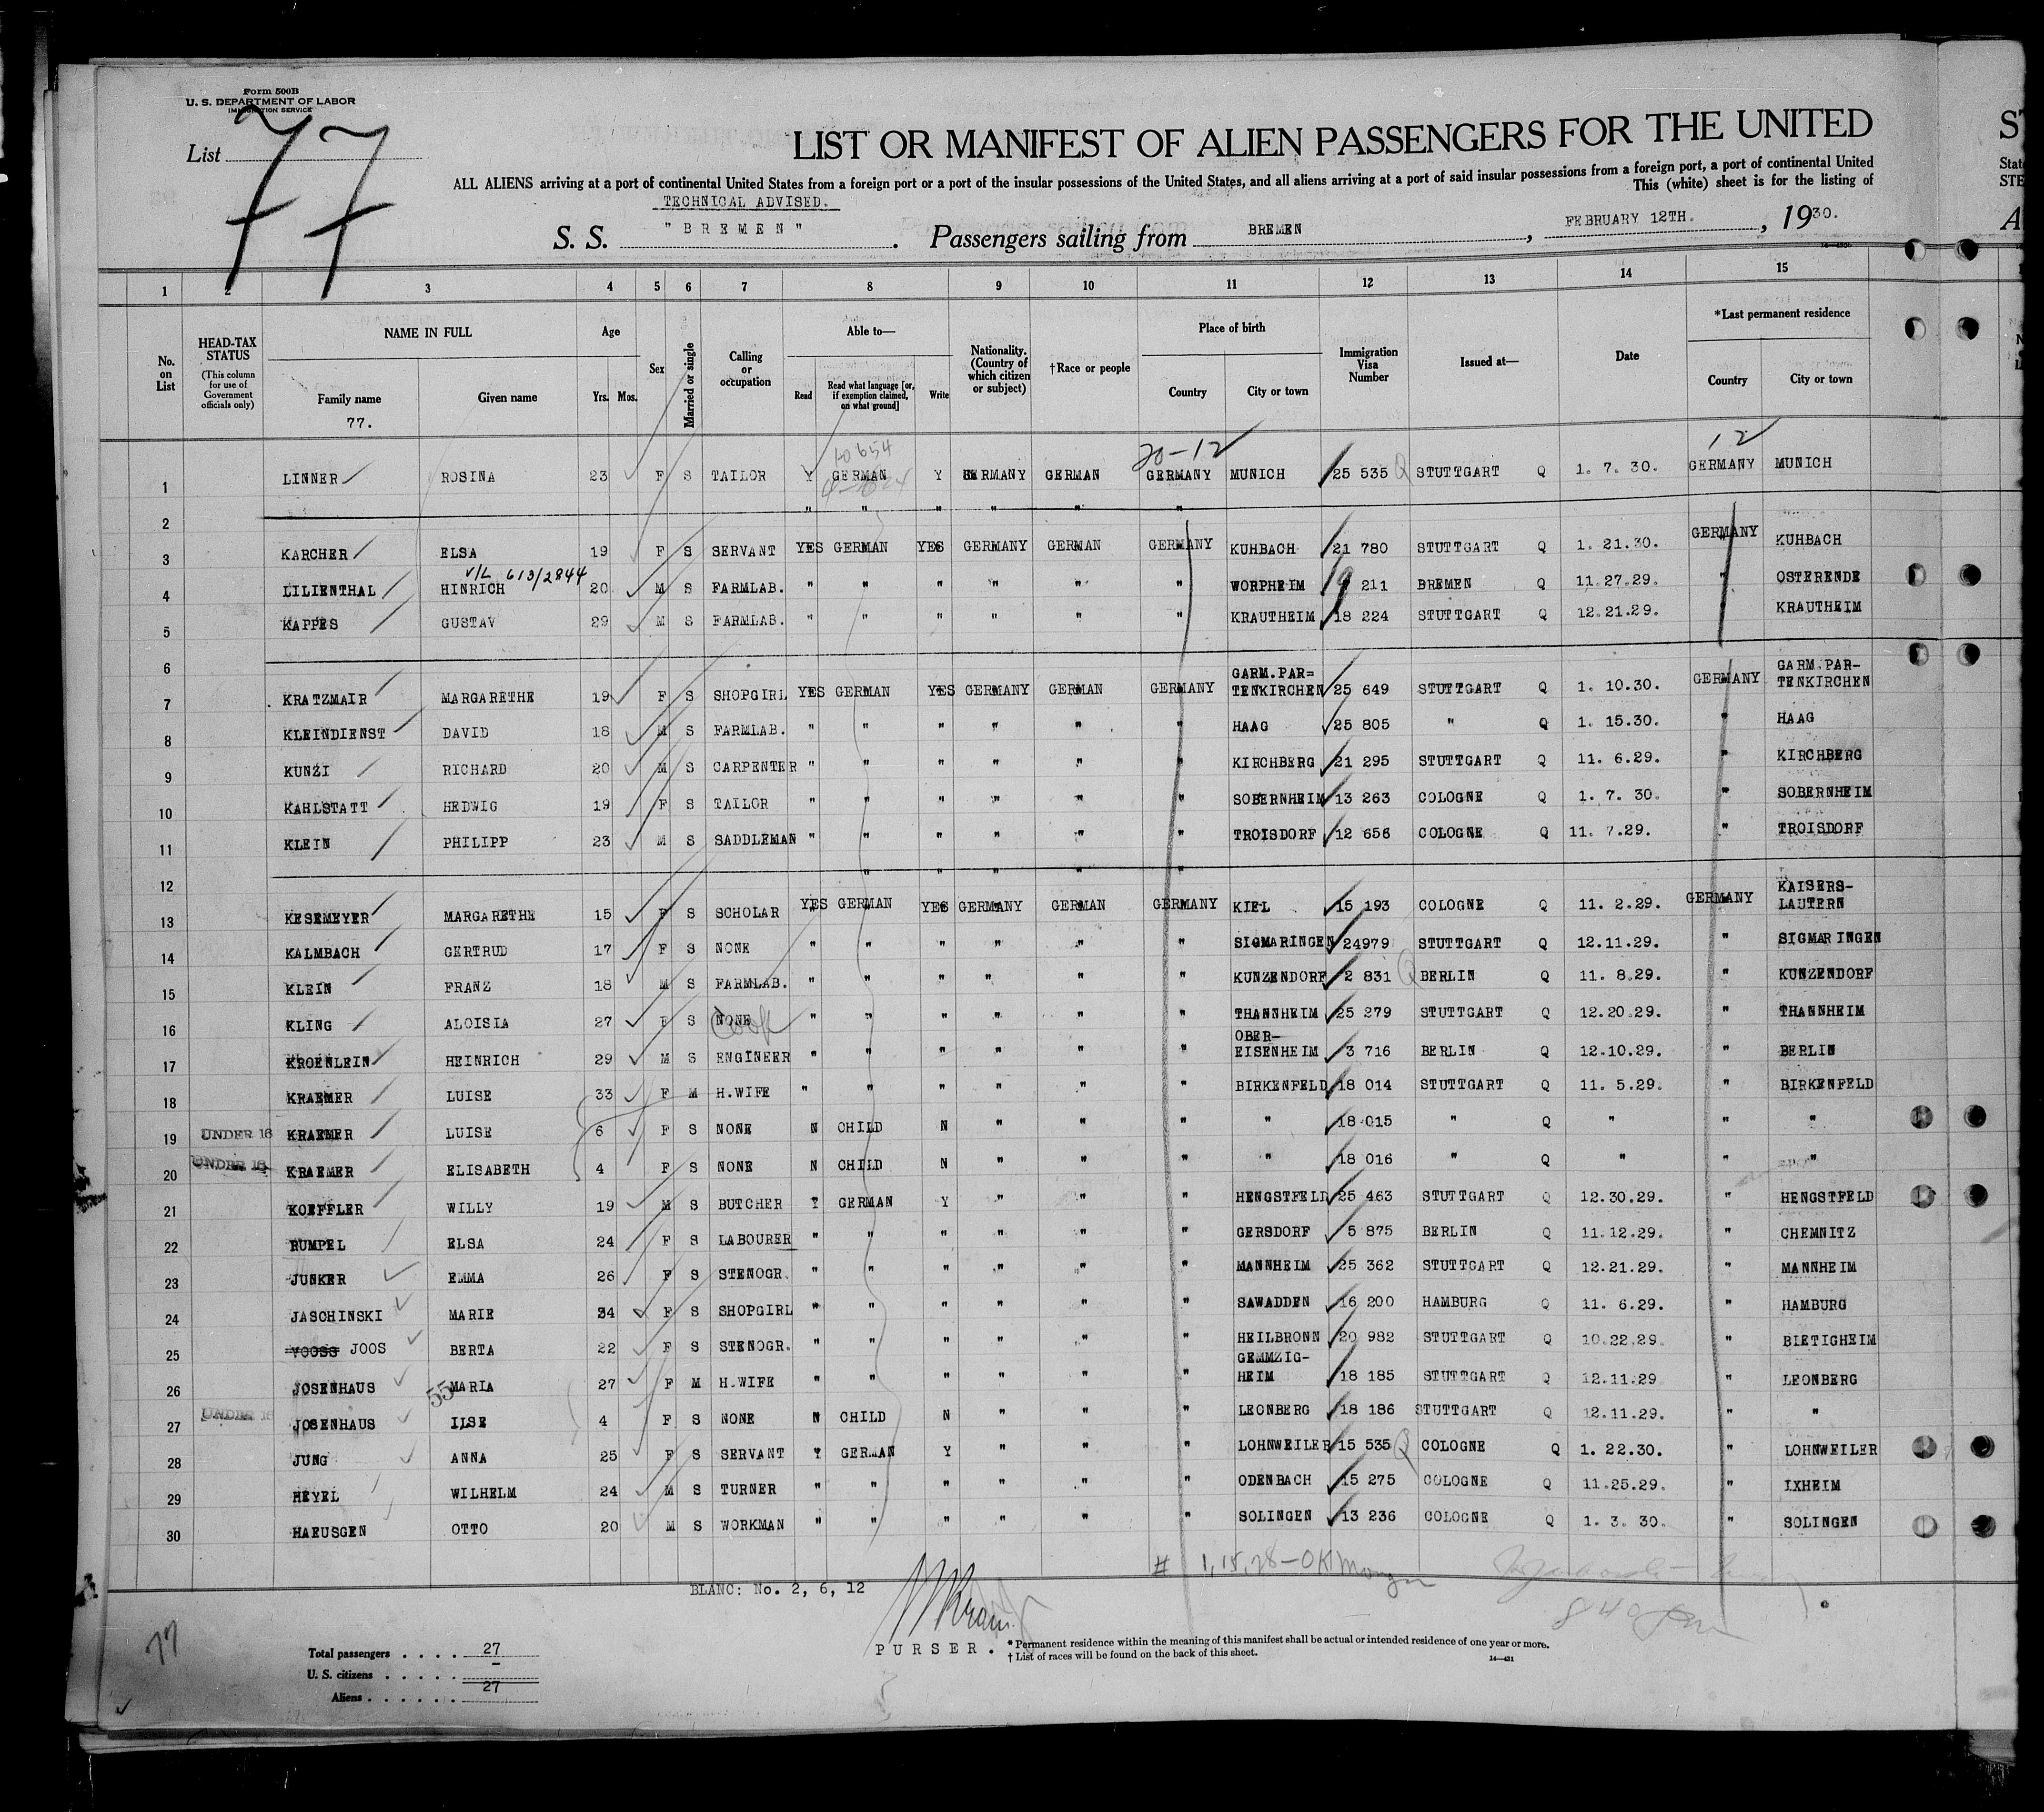 Form 500B
U. S. DEPARTMENT OF LABOR
IMMIGRATION SERVICE
List 77
LIST OR MANIFEST OF ALIEN PASSENGERS FOR THE UNITED
ALL ALIENS arriving at a port of continental United States from a foreign port or a port of the insular possessions of the United States, and all aliens arriving at a port of said insular possessions from a foreign port, a port of continental United
This (white) sheet is for the listing of
TECHNICAL ADVISED.
S. S. "BREMEN". Passengers sailing from BREMEN, FEBRUARY 12TH., 1930.
1 2 3 4 5 6 7 8 9 10 11 12 13 14 15
No. on List
HEAD-TAX STATUS (This column for use of Government officials only)
NAME IN FULL Family name Given name
Age Yrs. Mos.
Sex
Married or single
Calling or occupation
Able to— Read Read what language [or, if exemption claimed, on what ground] Write
Nationality. (Country of which citizen or subject)
†Race or people
Place of birth Country City or town
Immigration Visa Number
Issued at—
Date
*Last permanent residence Country City or town
77.
20-12 12
10654
1 LINNER ROSINA 23 F S TAILOR Y GERMAN Y GERMANY GERMAN GERMANY MUNICH 25 535 Q STUTTGART Q 1. 7. 30. GERMANY MUNICH
2 " " " " " "
3 KARCHER ELSA 19 F S SERVANT YES GERMAN YES GERMANY GERMAN GERMANY KUHBACH 21 780 STUTTGART Q 1. 21.30. GERMANY KUHBACH
V/L 613/2844
4 LILIENTHAL HINRICH 20 M S FARMLAB. " " " " " " WORPHEIM 9 211 BREMEN Q 11.27.29. " OSTERENDE
5 KAPPES GUSTAV 29 M S FARMLAB. " " " " " " KRAUTHEIM 18 224 STUTTGART Q 12.21.29. KRAUTHEIM
6
7 KRATZMAIR MARGARETHE 19 F S SHOPGIRL YES GERMAN YES GERMANY GERMAN GERMANY GARM.PAR=TENKIRCHEN 25 649 STUTTGART Q 1. 10.30. GERMANY GARM.PAR-TENKIRCHEN
8 KLEINDIENST DAVID 18 M S FARMLAB. " " " " " " HAAG 25 805 " Q 1. 15.30. " HAAG
9 KUNZI RICHARD 20 M S CARPENTER " " " " " " KIRCHBERG 21 295 STUTTGART Q 11. 6.29. " KIRCHBERG
10 KAHLSTATT HEDWIG 19 F S TAILOR " " " " " " SOBERNHEIM 13 263 COLOGNE Q 1. 7. 30. " SOBERNHEIM
11 KLEIN PHILIPP 23 M S SADDLEMAN " " " " " " TROISDORF 12 656 COLOGNE Q 11. 7.29. " TROISDORF
12 " " " " "
13 KESEMEYER MARGARETHE 15 F S SCHOLAR YES GERMAN YES GERMANY GERMAN GERMANY KIEL 15 193 COLOGNE Q 11. 2.29. GERMANY KAISERS-LAUTERN
14 KALMBACH GERTRUD 17 F S NONE " " " " " " SIGMARINGEN 24979 STUTTGART Q 12.11.29. " SIGMARINGEN
15 KLEIN FRANZ 18 M S FARMLAB. " " " " " " KUNZENDORF 2 831 Q BERLIN Q 11. 8.29. " KUNZENDORF
16 KLING ALOISIA 27 F S NONE Cook " " " " " " THANNHEIM 25 279 STUTTGART Q 12.20.29. " THANNHEIM
17 KROENLEIN HEINRICH 29 M S ENGINEER " " " " " " OBER-EISENHEIM 3 716 BERLIN Q 12.10.29. " BERLIN
18 KRAEMER LUISE 33 F M H.WIFE " " " " " " BIRKENFELD 18 014 STUTTGART Q 11. 5.29. " BIRKENFELD
19 UNDER 16 KRAEMER LUISE 6 F S NONE N CHILD N " " " " 18 015 " Q " " "
20 UNDER 16 KRAEMER ELISABETH 4 F S NONE N CHILD N " " " " 18 016 " Q " " "
21 KOEFFLER WILLY 19 M S BUTCHER Y GERMAN Y " " " HENGSTFELD 25 463 STUTTGART Q 12.30.29. " HENGSTFELD
22 RUMPEL ELSA 24 F S LABOURER " " " " " " GERSDORF 5 875 BERLIN Q 11.12.29. " CHEMNITZ
23 JUNKER EMMA 26 F S STENOGR. " " " " " " MANNHEIM 25 362 STUTTGART Q 12.21.29. " MANNHEIM
24 JASCHINSKI MARIE 34 F S SHOPGIRL " " " " " " SAWADDEN 16 200 HAMBURG Q 11. 6.29. " HAMBURG
25 YOOSS JOOS BERTA 22 F S STENOGR. " " " " " " HEILBRONN 20 982 STUTTGART Q 10.22.29. " BIETIGHEIM
26 JOSENHAUS 55 MARIA 27 F M H.WIFE " " " " " " GEMMZIG-HEIM 18 185 STUTTGART Q 12.11.29 " LEONBERG
27 UNDER 16 JOSENHAUS ILSE 4 F S NONE N CHILD N " " " LEONBERG 18 186 STUTTGART Q 12.11.29. " "
28 JUNG ANNA 25 F S SERVANT Y GERMAN Y " " " LOHNWEILER 15 535 Q COLOGNE Q 1. 22.30. " LOHNWEILER
29 HEYEL WILHELM 24 M S TURNER " " " " " " ODENBACH 15 275 COLOGNE Q 11.25.29. " IXHEIM
30 HAEUSGEN OTTO 20 M S WORKMAN " " " " " " SOLINGEN 13 236 COLOGNE Q 1. 3. 30. " SOLINGEN
# 1, 15, 28 - OK
BLANC: No. 2, 6, 12
840
PURSER.
77
Total passengers . . . . 27
U. S. citizens . . . . . –
Aliens . . . . . . 27
* Permanent residence within the meaning of this manifest shall be actual or intended residence of one year or more.
† List of races will be found on the back of this sheet.